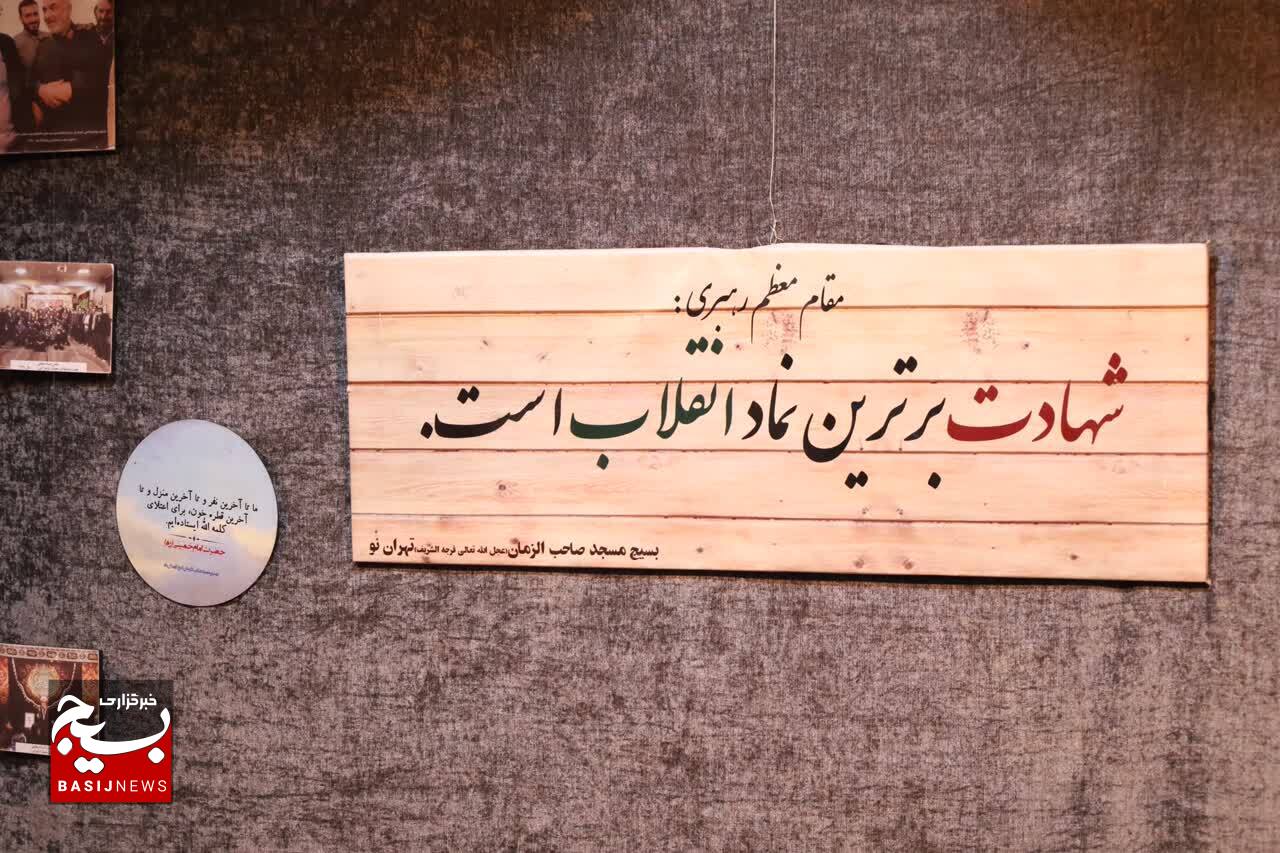 مقام معظم رهبری:
شهادت برترین نماد انقلاب است.
بسیج مسجد صاحب الزمان(عجل الله تعالی فرجه الشریف)تهران نو
ما تا آخرین نفر و تا آخرین منزل و تا
آخرین قطره خون، برای اعتلای
کلمه الله ایستاده‌ایم.
خبرگزاری
بسیج
BASIJNEWS